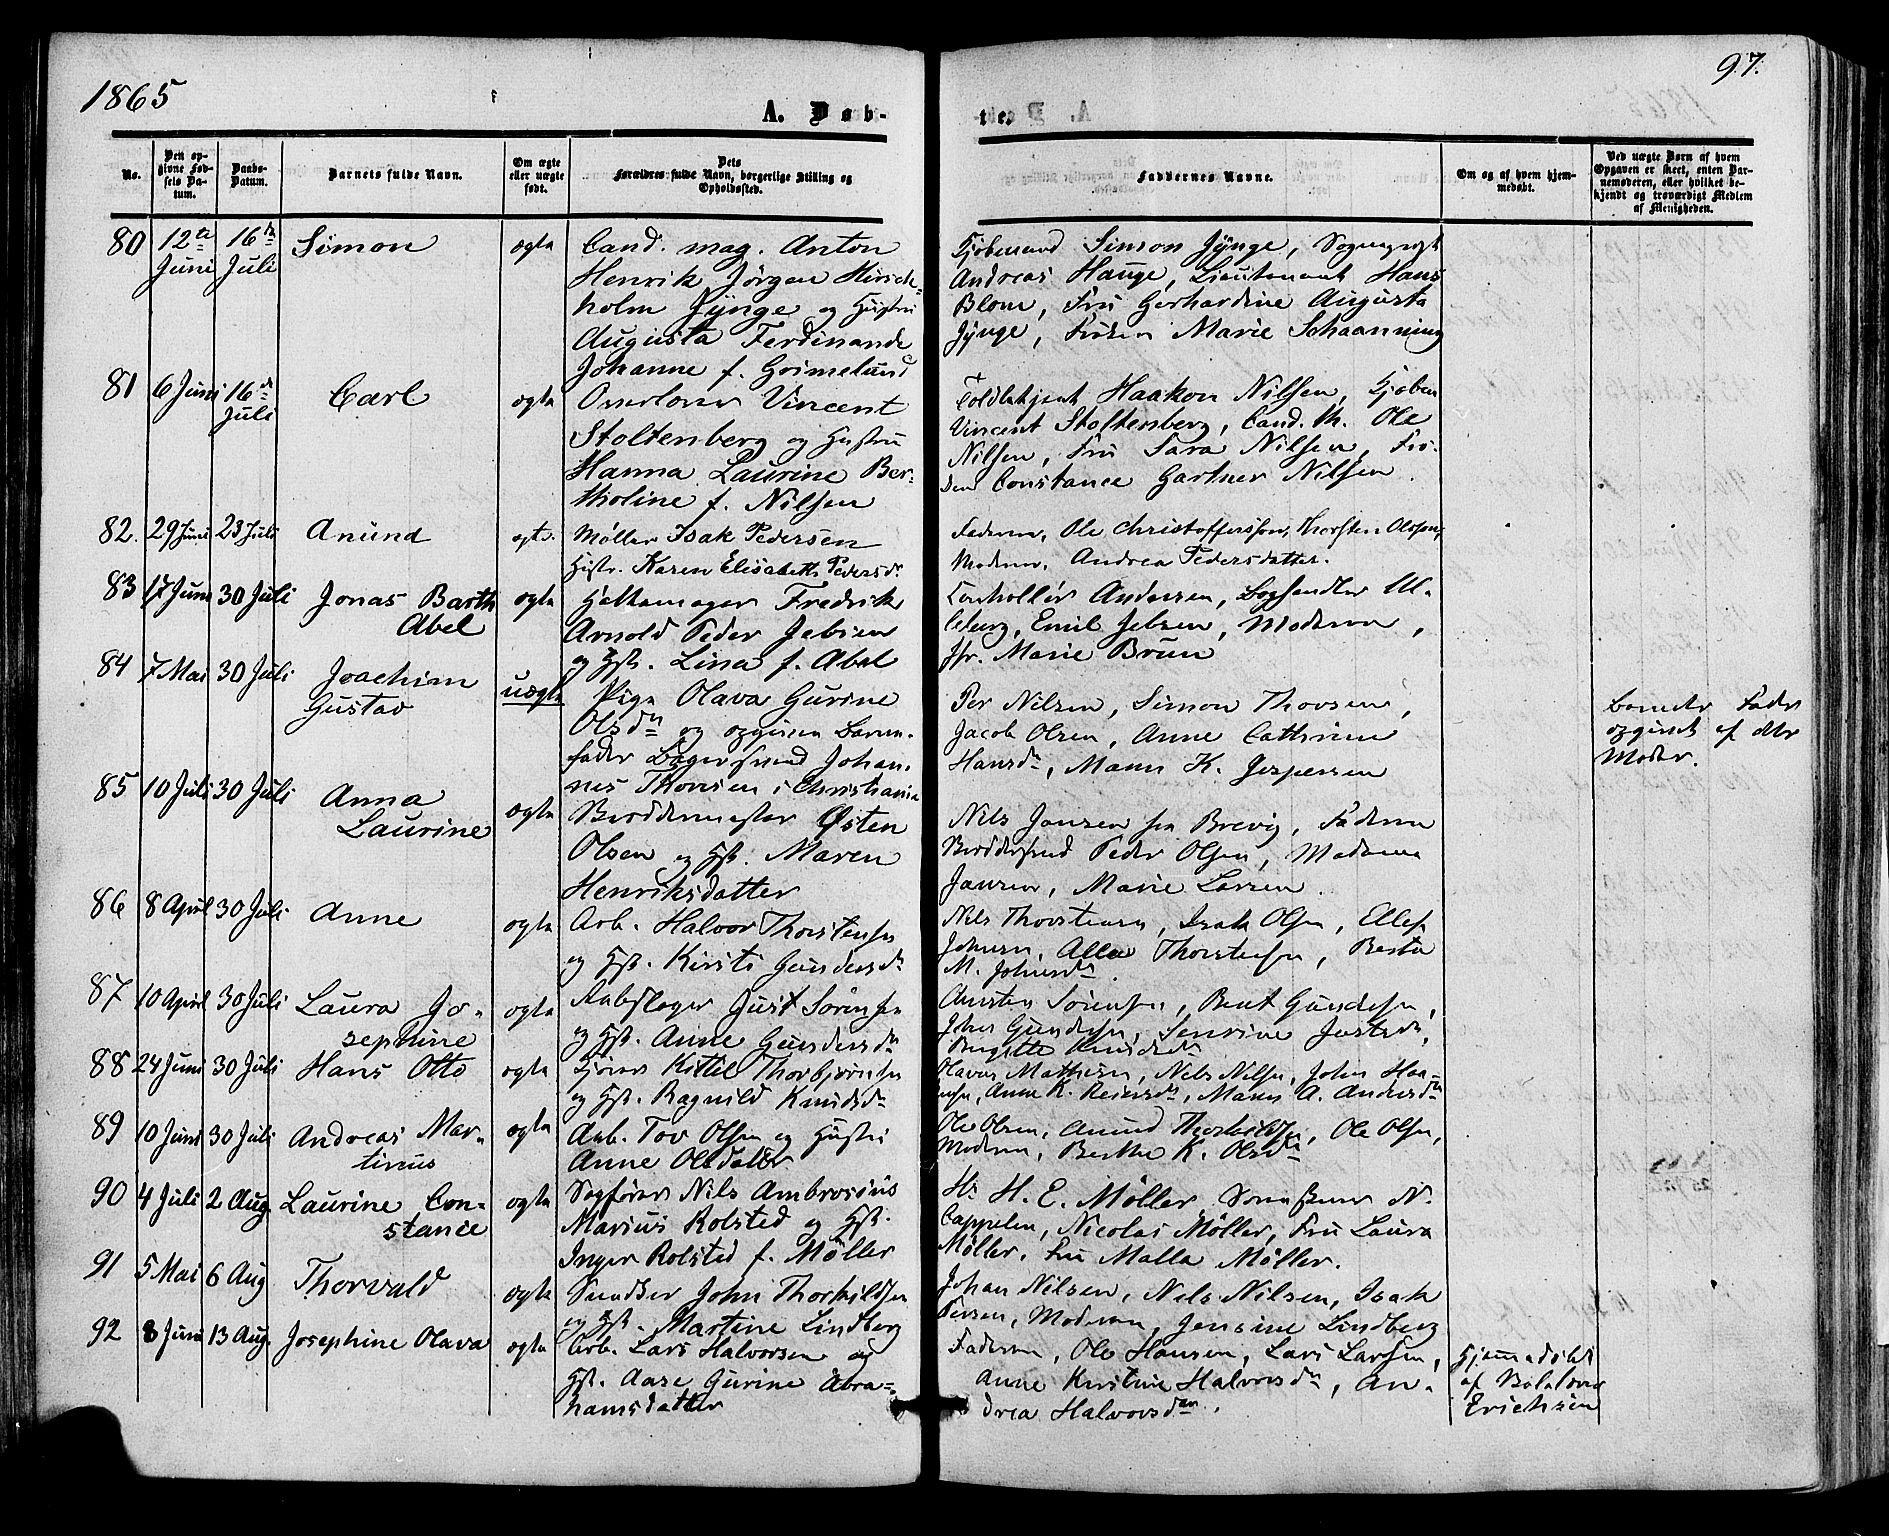 1865
97.
A. Døb-
te.
No.
Den op-
givne Fød-
sels Da-
tum.
Daabs-
Datum.
Barnets fulde Navn.
Om ægte
eller uægte
født.
Dets
Forældres fulde Navn, borgerlige Stilling og
Opholdssted.
Faddernes Navne.
Om og af hvem hjem-
medøbt.
Ved uægte Børn af hvem
Opgaven er skeet, enten Bar-
nemoderen, eller hvilket be-
kjendt og troværdigt Medlem
af Menigheden.
80 12te Juni 16de Juli Simon ægte
Cand. mag. Anton
Henrik Jörgen Hirsch-
holm Jynge og Hustru
Augusta Ferdinande
Johanne f. Grimelund
Kjøbmand Simon Jynge, Sogneprest
Andreas Hauge, Lieutenant Hans
Blom, Fru Gerhardine Augusta
Jynge, Frøken Marie Schaanning
81 6 Juni 16de Juli Carl ægte
Vincent
Stoltenberg og Hustru
Hanna Laurine Ber-
tholine f. Nilsen
Toldbetjent Haakon Nilsen, Kjøbm.
Vincent Stoltenberg, Cand. th. Ole
Nilsen, Fru Sara Nilsen, Frö-
ken Constance Gartner Nilsen.
82. 29 Juni 23 Juli Anund ægte.
Møller Isak Pedersen
Hustr. Karen Elisabeth Pedersdr
Faderen, Ole Christoffersen, Thorsten Olsen,
Moderen, Andrea Pedersdatter.
83 17 Juni 30 Juli Jonas Barth
Abel ægte
Fredrik
Arnold Peder Jebsen
og Hst. Lina f. Abel
Controllör Andersen, Boghandler Ul-
leberg, Emil Jebsen, Moderen,
Jfr. Marie Brun
84 7 Mai 30 Juli Joachim
Gustav uægte
Pige Olava Gurine
Olsdr og opgiven Barne-
fader Bagersvend Johan-
nes Thorsen i Christiania
Per Nilsen, Simon Thorsen,
Jacob Olsen, Anne Cathrine
Hansdr, Maren K. Jespersen
Barnets Fader
opgivet af dets
Moder.
85 10 Juli 30 Juli Anna
Laurine ægte
Østen
Olsen og Hst. Maren
Henriksdatter
Nils Jansen fra Brevig, Faderen
Peder Olsen, Madame
Jansen, Marie Larsen.
86 8 April 30 Juli Anne ægte
Arb. Halvor Thorstensen
og Hst. Kirsti Gundersdr
Nils Thorstensen, Isak Olsen, Ellef
Johnsen, Alla Thorstensen, Berte
M. Johnsdr.
87 10 April 30 Juli Laura Jo-
sephine ægte
Rebslager Just Sörensen
og Hst. Anne Gundersdr
Carsten Sörensen, Bent Gundersen,
Gundersen, Severine Justsdr,
Birgitte Knudsdr
88 24 Juni 30 Juli Hans Otto ægte
Kittil Thorbjørnsen
og Hst. Ragnild Knudsdr
Olavus Mathisen, Nils Nilsen, John Han-
sen, Anne K. Reiersdr, Maren A. Andersdr
89 10 Juni 30 Juli Andreas Mar-
tinus ægte
Arb. Tov Olsen og Hustru
Anne Olsdatter
Ole Olsen, Anund Thorkildsen, Ole Olsen,
Moderen, Berthe K. Olsdr
90 4 Juli 2 Aug. Laurine Con-
stance ægte
Sagfører Nils Ambrosius
Marius Rolsted og Hst.
Inger Rolsted f. Møller
Hr H. E. Møller, N.
Cappelen, Nicolai Møller, Fru Laura
Møller, Fru Malla Møller.
91 5 Mai 6 Aug Thorvald ægte
Snedker John Thorkildsen
og Hst. Martine Lindberg
Johan Nilsen, Nils Nilsen, Isak
Persen, Moderen, Jensine Lindberg
92 8 Juni 13 Aug. Josephine Olava ægte
Arb. Lars Halvorsen og
Hst. Aase Gurine Abra-
hamsdatter
Faderen, Ole Hansen, Lars Larsen,
Anne Kirstine Halvorsdr, An-
drea Halvorsdr.
Hjemmedøbt
af
Erichsen